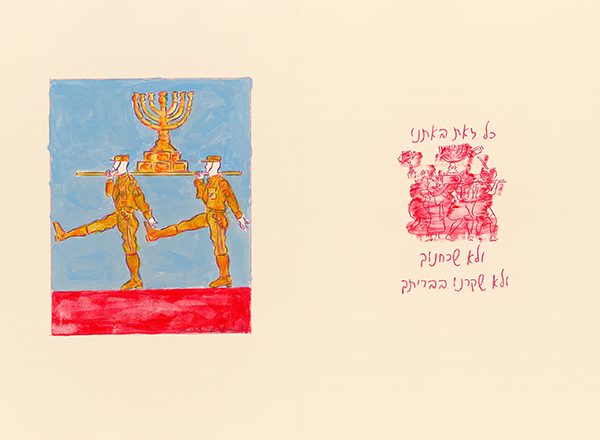 כל זאת באתנו
ולא שכחנוך
ולא שקרנו בבריתך